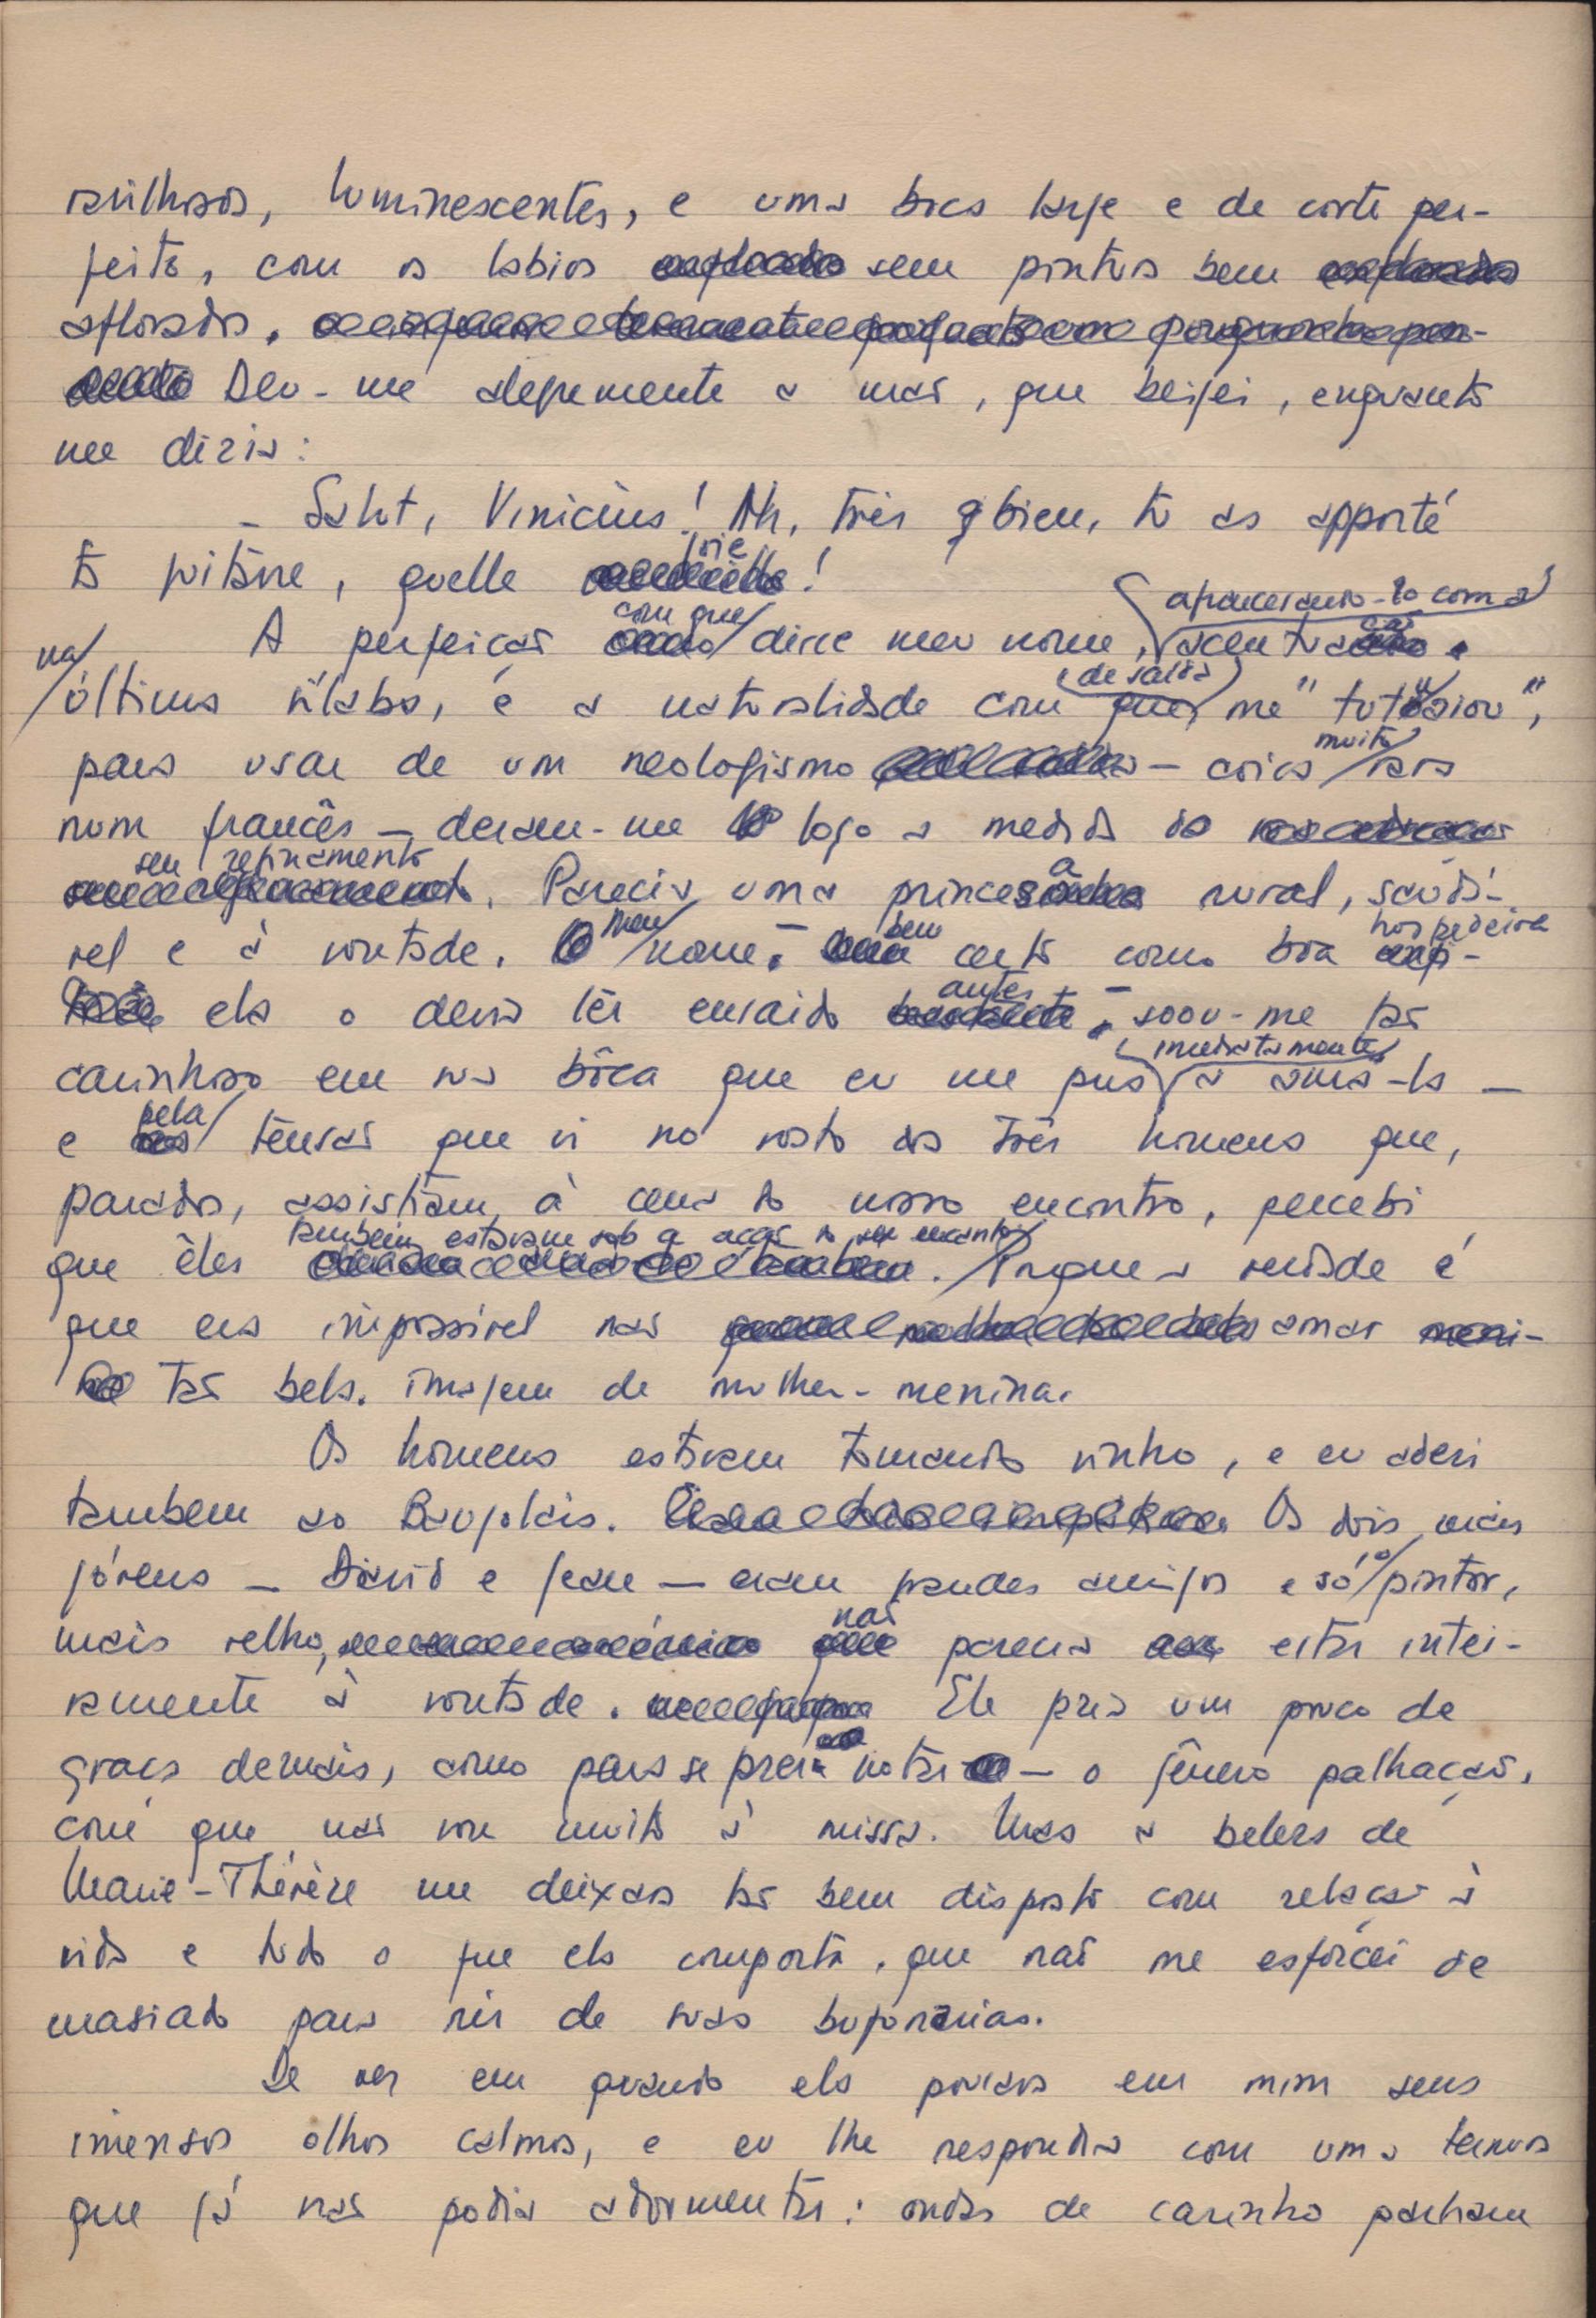 luminescentes, e uma boca large e de corte per-
feito, com os labios sem pintura bem
aflorados.
Deu-me alegremente a mão, que beijei, enquanto
me dizia:
— Salut, Vinicius! Ah, très bien, tu as apporté
ta guitare, quelle joie!
A perfeição com que disse meu nome, afrancesando-lo com a acentuação
na última sílaba, e a naturalidade com que, de saída, me "tutoiou",
para usar de um neologismo — coisa muito rara
num francês — deram-me logo a medida do
seu refinamento. Parecia uma princesa rural, saudá-
vel e à vontade. O meu nome — bem certo como boa hospedeira
ela o devia têr ensaido antes — soou-me tão
carinhoso em sua bôca que eu me pus imediatamente a amá-la —
e pela tensão que vi no rosto dos três homens que,
parados, assistiam à cena do nosso encontro, percebi
que êles tambem estavam sob a ação do seu encanto. Porque a verdade é
que era impossivel não amar
tão bela imagem de mulher-menina.
Os homens estavam tomando vinho, e eu aderi
tambem ao Beaujolais. Os dois mais
jóvens — David e Jean — eram grandes amigos e só o pintor,
mais velho, não parecia estar intei-
ramente à vontade. Ele fazia um pouco de
graça demais, como para se fazer notar — o gênero palhação,
com que não vou muito à missa. Mas a beleza de
Marie-Thérèse me deixara tão bem disposto com relação à
vida e tudo o que ela comporta, que não me esforcei de
masiado para rir de suas bufonarias.
De vez em quando ela pousava em mim seus
imensos olhos calmos, e eu lhe respondia com uma ternura
que já não podia adormentar: ondas de carinho partiam